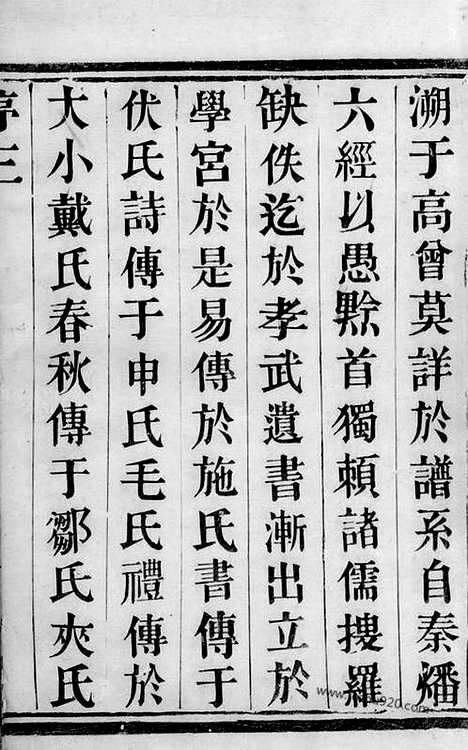 溯于高曾莫詳於譜系自秦燔
六經以愚黔首獨頼諸儒搜羅
缺佚迄於孝武遺書漸出立於
學宮於是易傳於施氏書傳于
伏氏詩傳于申氏毛氏禮傳於
大小戴氏春秋傳于鄒氏夾氏